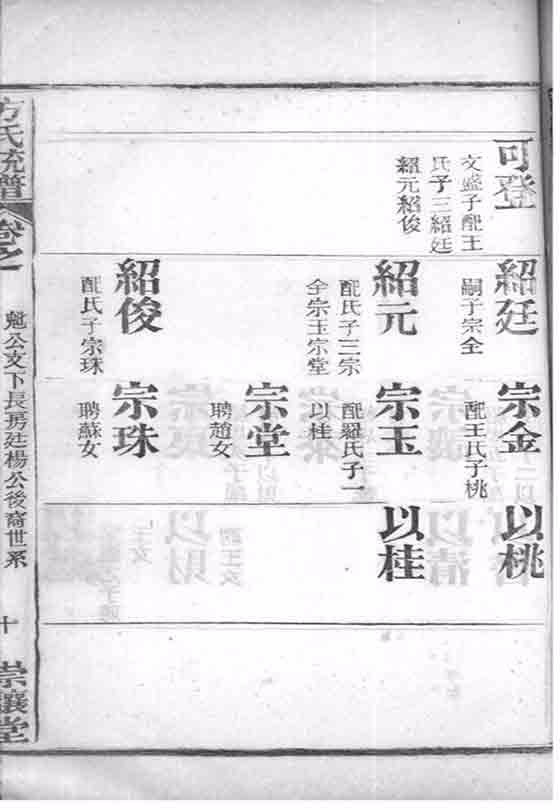 可登
文盛子配王
氏子三紹廷
紹元紹俊
紹廷
嗣子宗全
紹元
配氏子三宗
全宗玉宗堂
紹俊
配氏子宗珠
宗金
配王氏子桃
宗玉
配羅氏子一
以桂
宗堂
聘趙女
宗珠
聘蘇女
以桃
以桂
方氏統譜
卷之一
魁公支下長房廷楊公後裔世系
十
崇讓堂